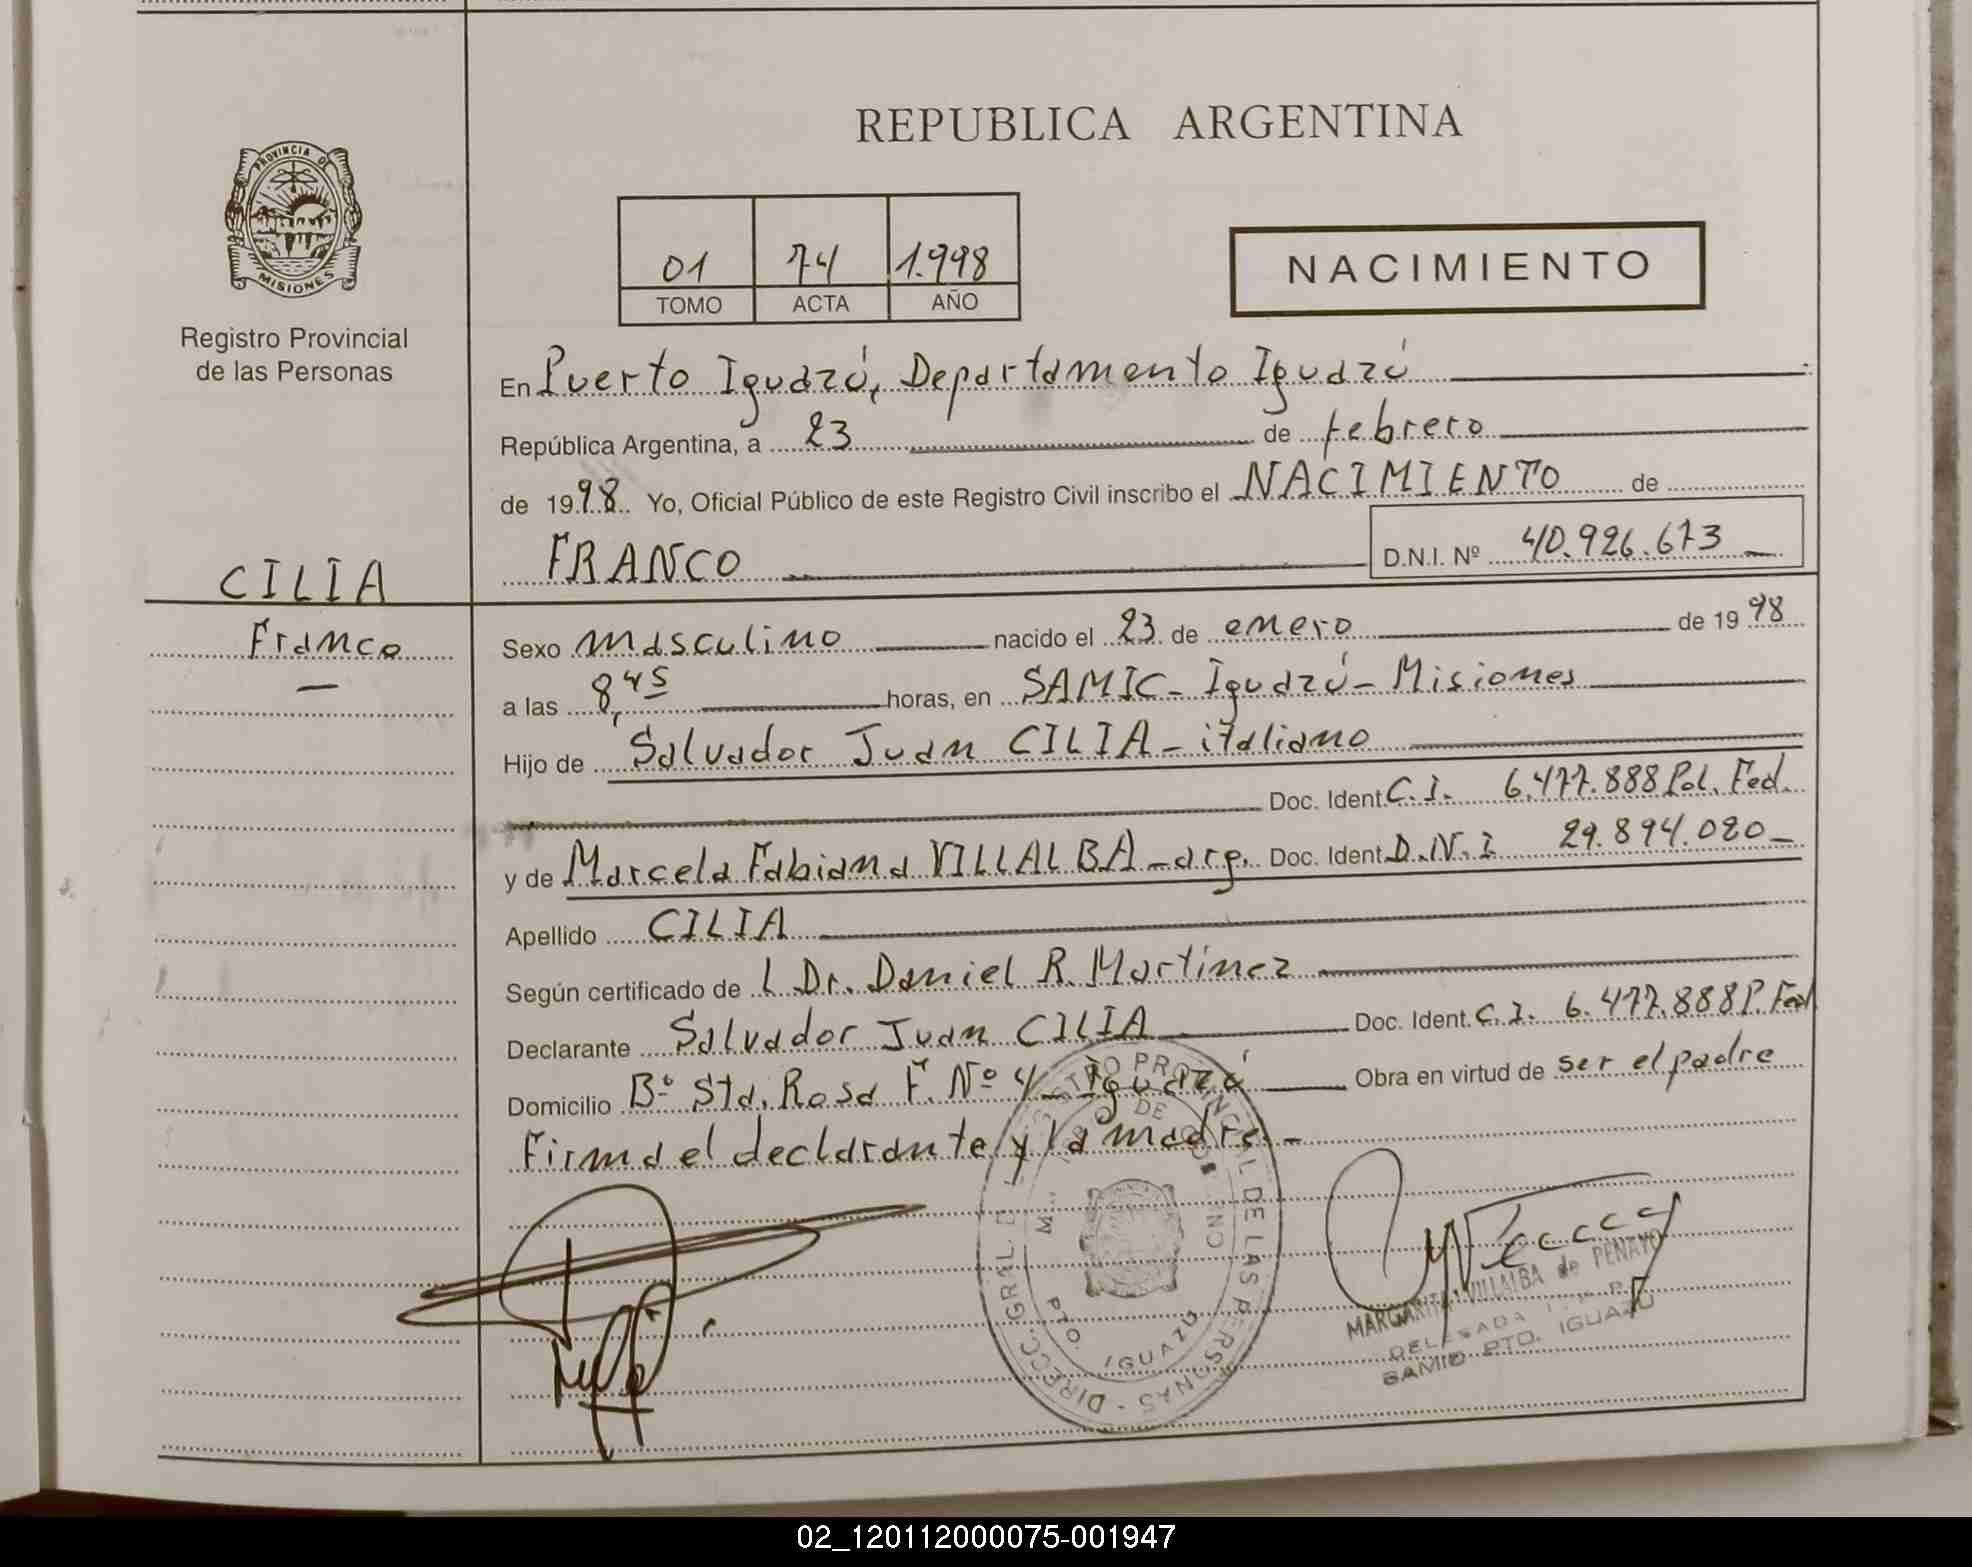 REPUBLICA ARGENTINA
PROVINCIA DE MISIONES
Registro Provincial
de las Personas
01 74 1.998
TOMO ACTA AÑO
NACIMIENTO
En Puerto Iguazú, Departamento Iguazú
República Argentina, a 23 de febrero
de 1998 Yo, Oficial Público de este Registro Civil inscribo el NACIMIENTO de
FRANCO D.N.I. Nº 40.926.673
CILIA
Franco
Sexo masculino nacido el 23 de enero de 1998
a las 8,45 horas, en SAMIC - Iguazú - Misiones
Hijo de Salvador Juan CILIA - italiano
Doc. Ident. C.I. 6.477.888 Pol. Fed.
y de Marcela Fabiana VILLALBA - arg. Doc. Ident. D.N.I 29.894.020
Apellido CILIA
Según certificado de l Dr. Daniel R. Martínez
Declarante Salvador Juan CILIA Doc. Ident. C.I. 6.477.888 P. Fed
Domicilio Bº Sta. Rosa F. Nº 4 - Iguazú Obra en virtud de ser el padre
Firma el declarante y la madre. -
DIRECC. GRAL. DEL REGISTRO PROVINCIAL DE LAS PERSONAS
PTO. IGUAZU
MARGARITA VILLALBA de PENAYO
DELEGADA
SAMIC PTO. IGUAZU
02_120112000075-001947